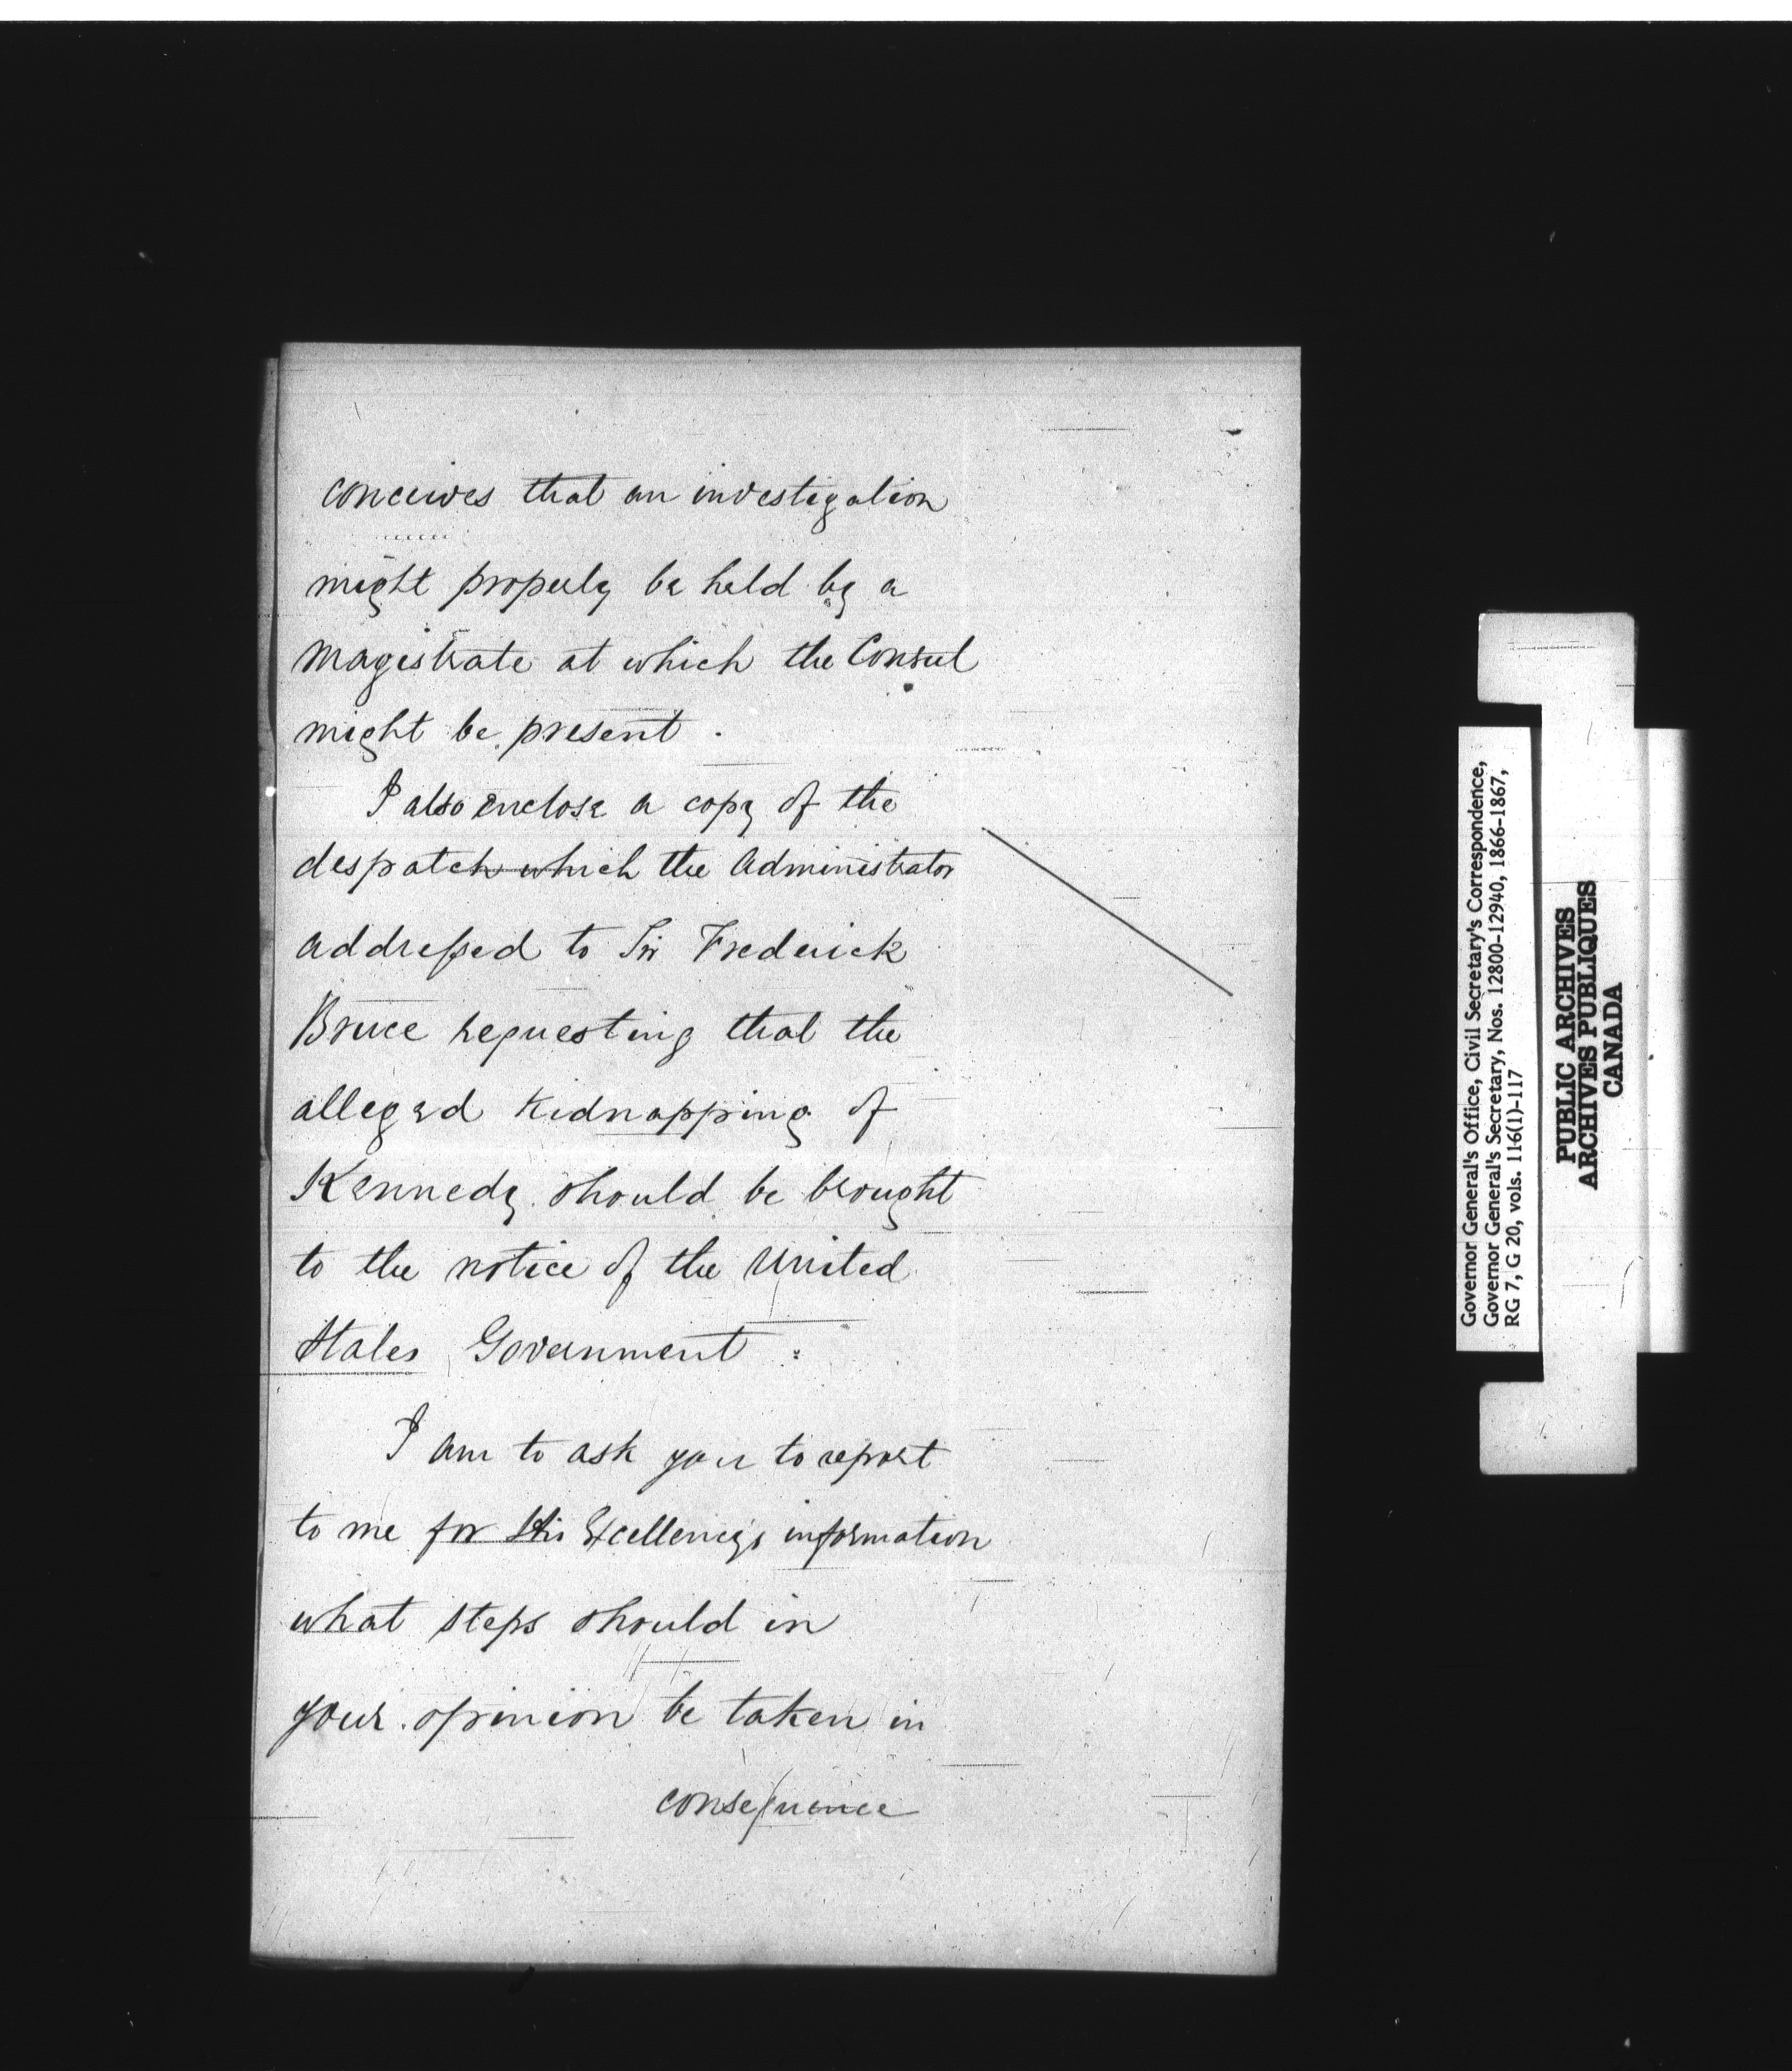 conceives that an investigation
might properly be held by a
magistrate at which the Consul
might be present.
I also enclose a copy of the
despatch which the Administrator
addressed to Sir Frederick
Bruce requesting that the
alleged kidnapping of
Kennedy should be brought
to the notice of the United
States Government.
I am to ask you to report
to me for His Excellency's information
what steps should in
your opinion be taken in
consequence
Governor General's Office, Civil Secretary's Correspondence,
Governor General's Secretary, Nos. 12800-12940, 1866-1867,
RG 7, G 20, vols. 116(1)-117
PUBLIC ARCHIVES
ARCHIVES PUBLIQUES
CANADA